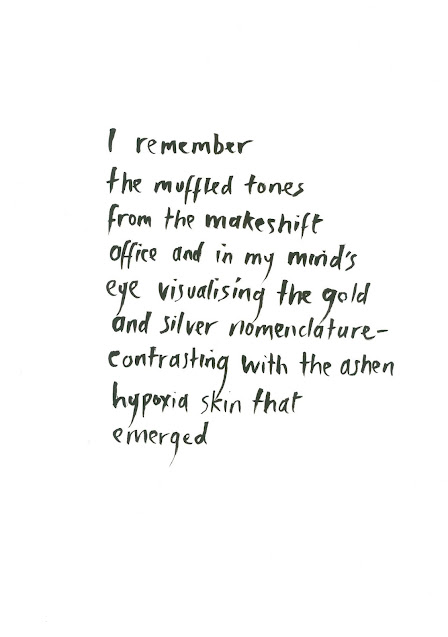 I remember
the muffled tones
from the makeshift
office and in my mind's
eye visualising the gold
and silver nomenclature-
contrasting with the ashen
hypoxia skin that
emerged